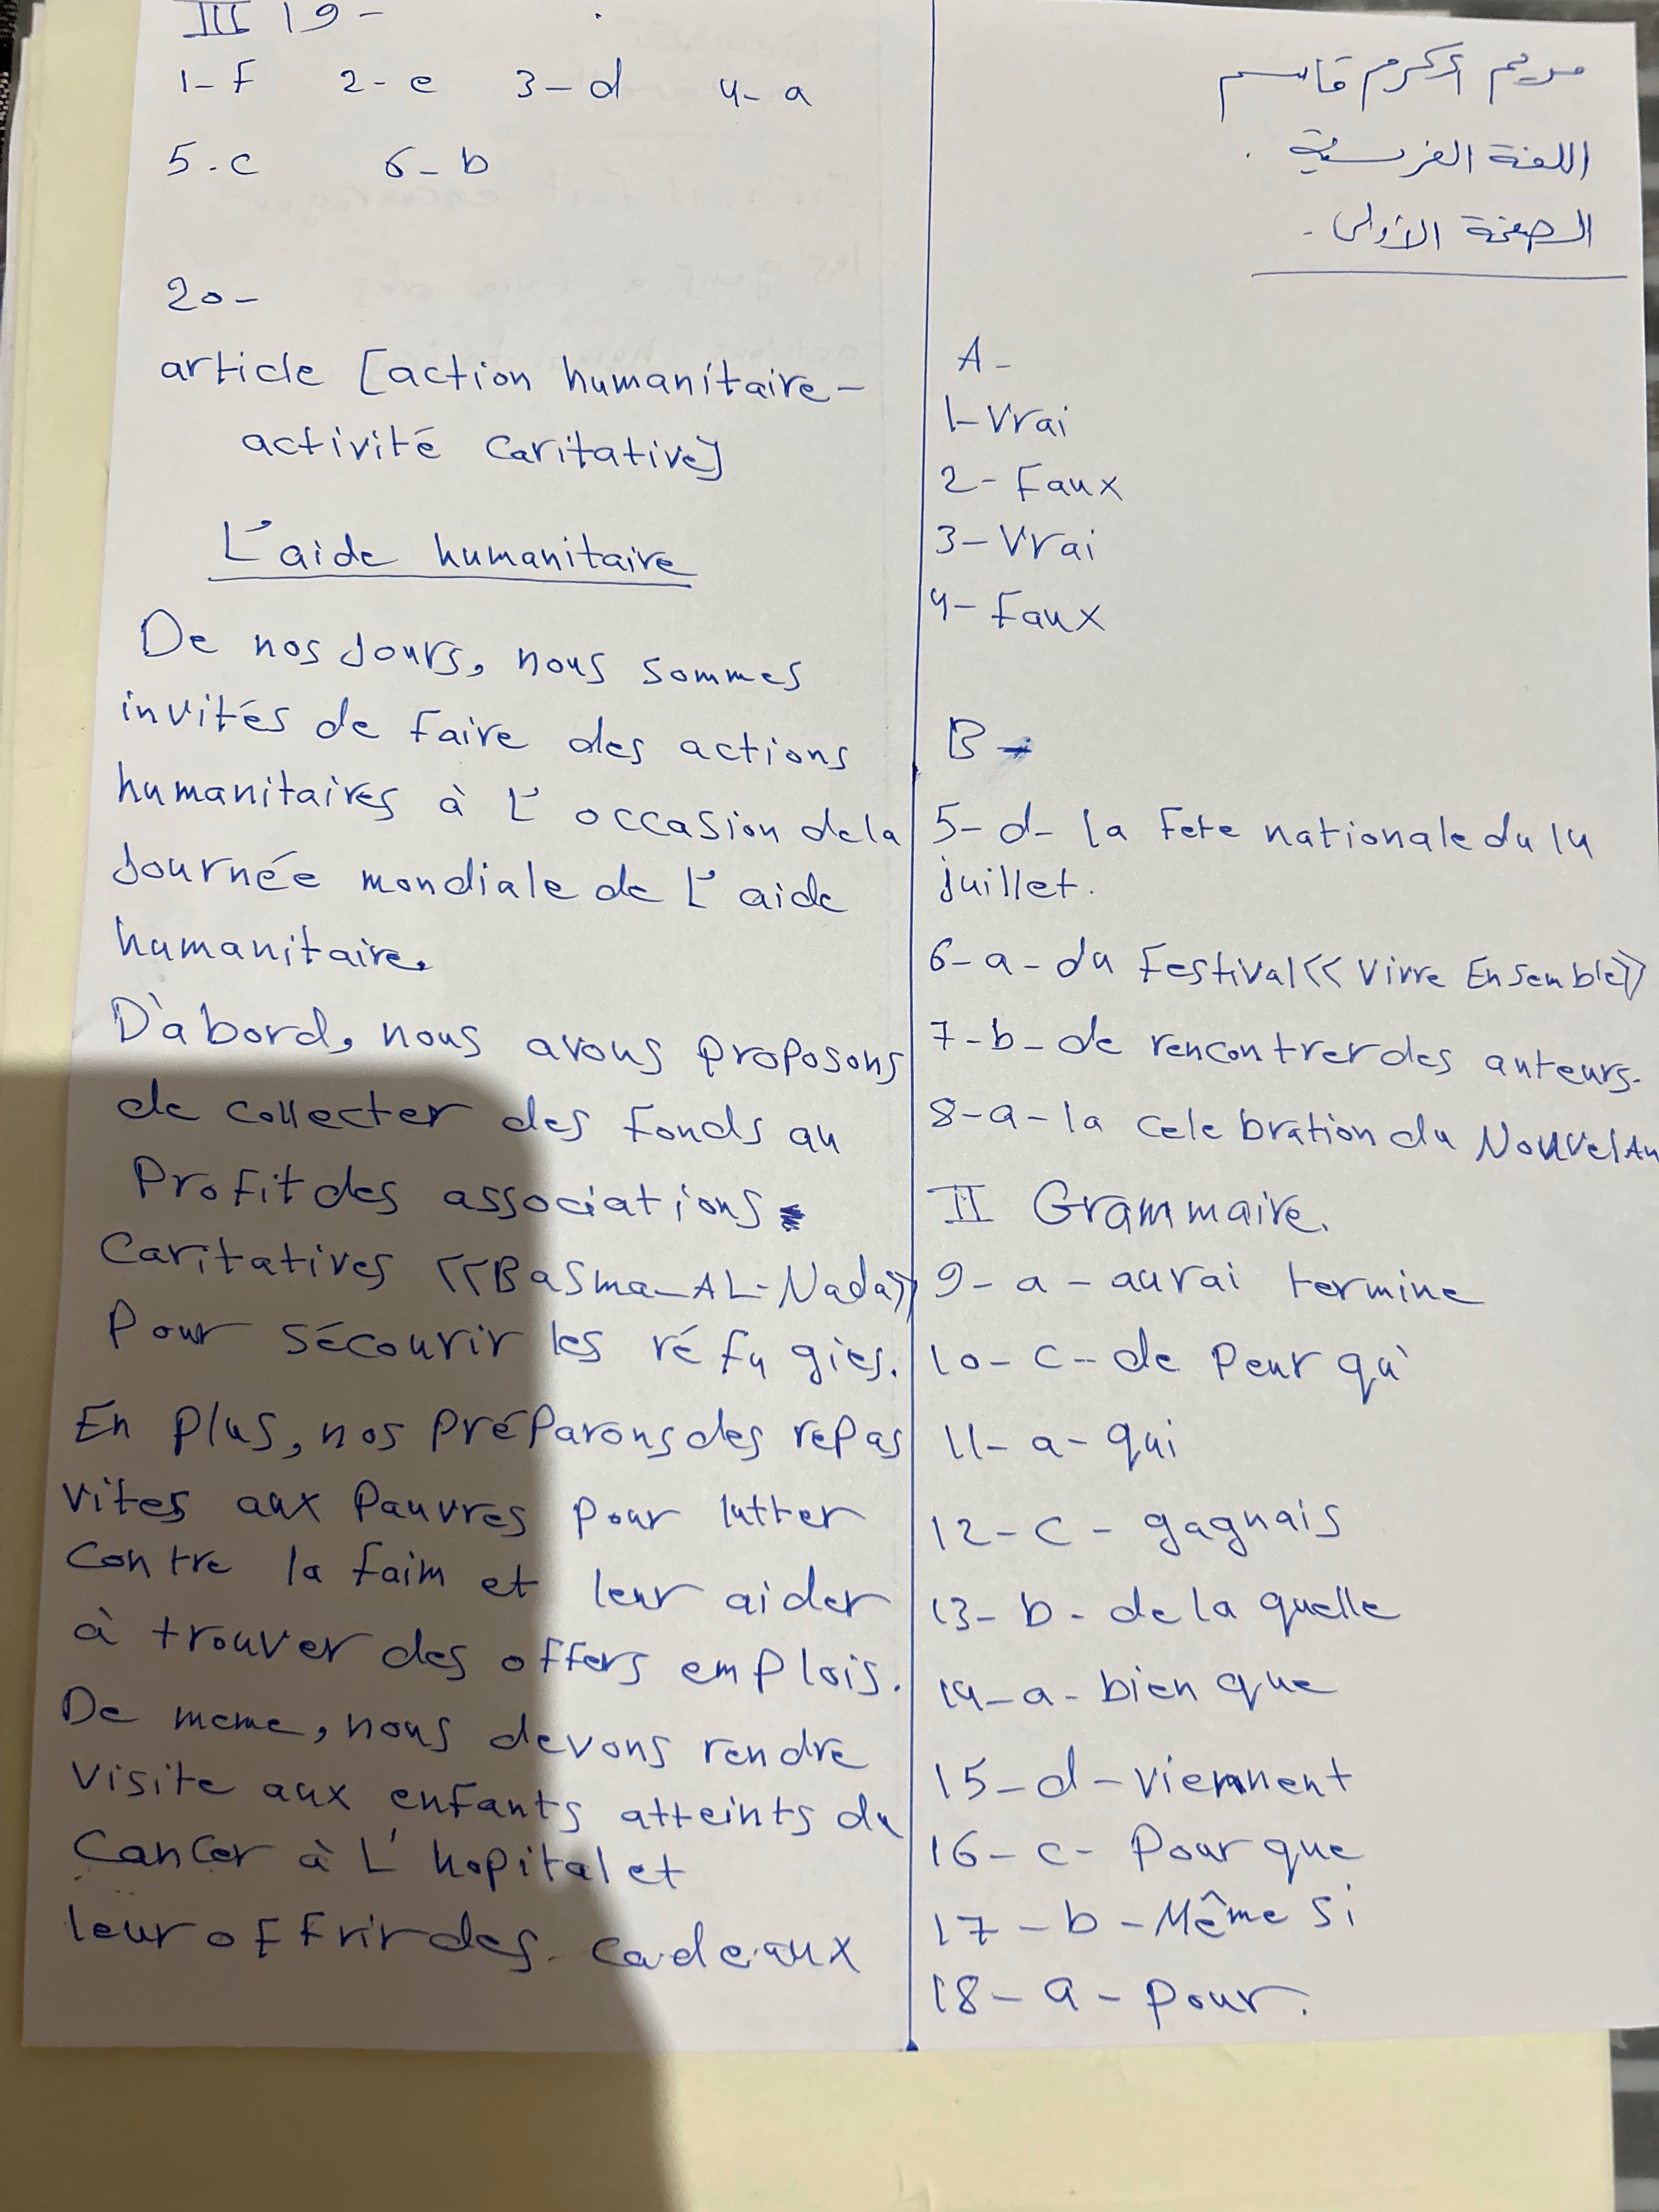 مريم اكرم قاسم
اللغة الفرنسية .
الصفحة الأولى .
A -
1- Vrai
2- Faux
3- Vrai
4- Faux
B -
5- d- la Fete nationale du 14
juillet.
6- a - du Festival << Vivre Ensemble >>
7- b - de rencontrer des auteurs.
8- a - la celebration du Nouvel An
II Grammaire.
9- a - aurai termine
10- c - de peur qu'
11- a - qui
12- c - gagnais
13- b - de la quelle
14- a - bien que
15- d - viennent
16- c - Pour que
17 - b - Même si
18 - a - pour.
III 19 -
1- f 2- e 3- d 4- a
5. c 6- b
20 -
article [action humanitaire -
activité caritative]
L'aide humanitaire
De nos jours, nous sommes
invités de faire des actions
humanitaires à L' occasion de la
journée mondiale de L' aide
humanitaire.
D'abord, nous avons proposons
de collecter des fonds au
Profit des associations
Caritatives << Basma - AL - Nada >>
Pour sécourir les réfugies.
En plus, nos préparons des repas
vites aux Pauvres pour lutter
contre la faim et leur aider
à trouver des offers emplois.
De meme, nous devons rendre
visite aux enfants atteints du
Cancer à L' hopital et
leur offrir des cadeaux